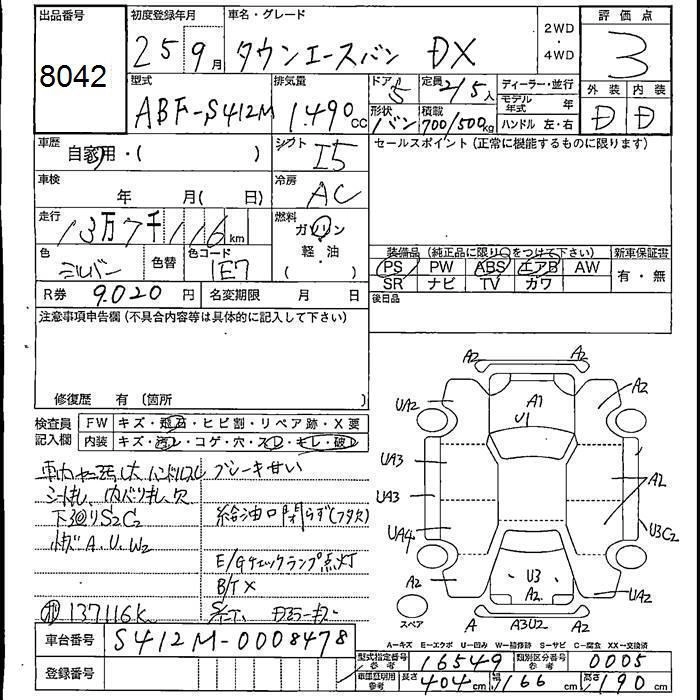 出品番号
8042
初度登録年月
25 9月
車名・グレード
タウンエースバン DX
2WD
・
4WD
評価点
3
外装 内装
D D
型式
ABF-S412M
排気量
1.490cc
ドア 5
形状 バン
定員 2/5人
積載 700/500kg
ディーラー・並行
モデル年式 年
ハンドル 左・右
車歴
自家用・( )
シフト
I5
セールスポイント(正常に機能するものに限ります)
車検
年 月( 日)
冷房
AC
走行
13万7千116km
燃料
ガソリン
軽・油
( )
色
シルバー
色替
色コード
1E7
装備品(純正品に限り○をつけて下さい)
PS PW ABS エアB AW
SR ナビ TV カワ
新車保証書
有・無
R券 9.020円
名変期限 月 日
後日品
注意事項申告欄(不具合内容等は具体的に記入して下さい)
修復歴 有(箇所 )
検査員記入欄
FW キズ・飛石・ヒビ割・リペア跡・X要
内装 キズ・汚レ・コゲ・穴・スレ・キレ・破レ
ブレーキせい
下回りS2C2
給油口閉らず(フタ欠)
A.U.W2
E/Gチェックランプ点灯
B/TX
137116K
車台番号 S412M-0008478
登録番号
A2 A2
UA2 A1 A2
U1
UA3
UA3 A2
UA4 U3C2
U3
A2 A2 UA2
スペア A A3U2 A2
A=キズ E=エクボ U=凹み W=補修跡 S=サビ C=腐食 XX=交換済
型式指定番号 参考 16549
類別区分番号 参考 0005
車庫証明用 参考 長さ 404cm 幅 166cm 高さ 190cm